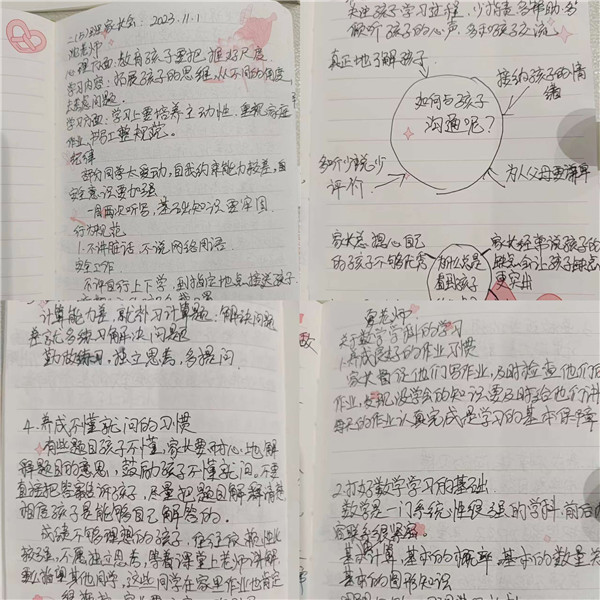 二(5)班家长会:2023.11.1
老师
心理方面:教育孩子要把握好尺度
学习内容:拓展孩子的思维,从不同的角度
去考虑问题.
学习方面:学习上要培养主动性,重视家庭
作业,书写工整规范。
纪律
部分同学太爱动,自我约束能力较差,
安全意识要加强
一周两次听写,基础知识要牢固
行为规范
1.不讲脏话,不说网络用语.
安全工作.
不许自行上下学,到指定地点接送孩子.
关注孩子学习过程,少指责多帮助,多
倾听孩子的心声,多和孩子交流
真正地了解孩子.
接纳孩子的情
绪
如何与孩子
沟通呢?
多听少说少
评价
为人父母要谦卑
家长总担心自己
的孩子不够优秀
为什么总是
看到孩子
家长经常说孩子的
缺点会让孩子缺点
更突出
计算能力差,就补习计算题;解决问题
差就多练习解决问题
勤做练习,独立思考,多提问.
4.养成不懂就问的习惯
有些题目孩子不懂,家长要耐心地解
释题目的意思,鼓励孩子不懂就问.不要
直接把答案告诉孩子,尽量把题目解释清楚
相信孩子是能够自己解答的.
成绩不够理想的孩子,往往依赖性比
较强,不愿独立思考,等着课堂上老师讲解
指望其他同学,这些同学在家里作业也肯定
夏老师
关于数学学科的学习
1.养成良好的作业习惯
家长督促他们写作业,及时检查他们的
作业,发现没学会的知识要及时给他们讲
每天的作业认真完成是学习的基本保障
2.打好数学学习的基础
数学是一门系统性很强的学科,前后内
容联系很紧密.
基本计算,基本的概念,基本的数量关
基本的图形知识